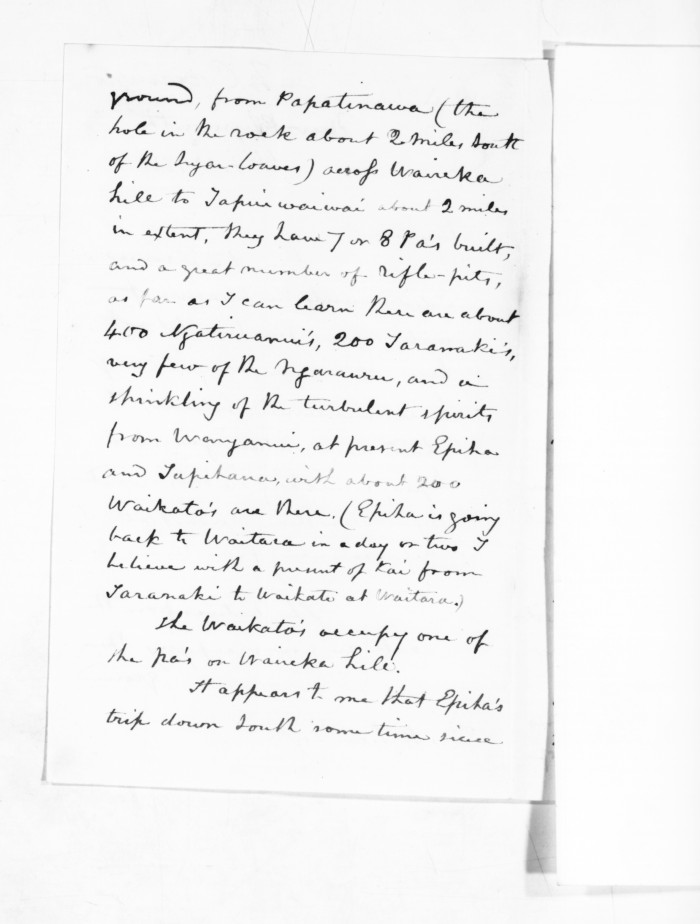 ground, from Papatinawa (the
hole in the rock about 2 miles South
of the Sugar-loaves) across Waireka
hill to Tapuiwaiwai about 2 miles
in extent, they have 7 or 8 Pa's built,
and a great number of rifle-pits,
as far as I can learn there are about
400 Ngatiruanui's, 200 Taranaki's,
very few of the Ngarauru, and a
sprinkling of the turbulent spirits
from Wanganui, at present Epiha
and Tapihana, with about 200
Waikato's are there. (Epiha is going
back to Waitara in a day or two I
believe with a present of Kai from
Taranaki to Waikato at Waitara.)
The Waikato's occupy one of
the pa's on Waireka hill.
It appears to me that Epiha's
trip down South some time since